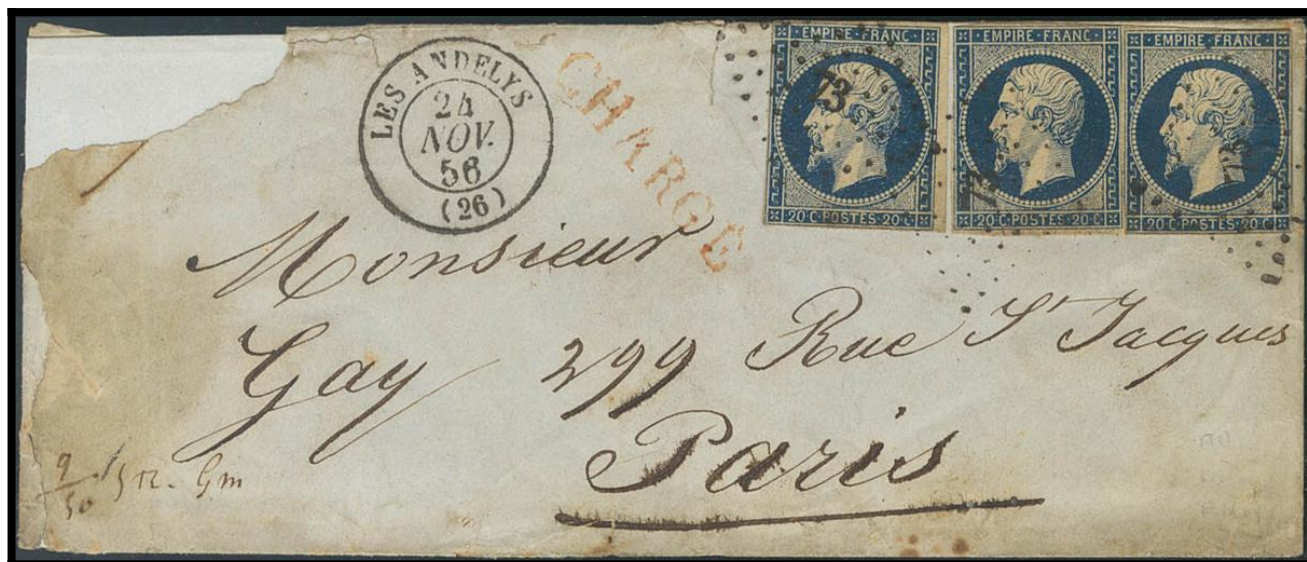 LES ANDELYS
24
NOV.
56
(26)
CHARGE
EMPIRE · FRANC ·
20 C · POSTES · 20 C
EMPIRE · FRANC ·
20 C · POSTES · 20 C
EMPIRE · FRANC ·
20 C · POSTES · 20 C
73
73
73
Monsieur
Gay 299 Rue St Jacques
Paris
9
50